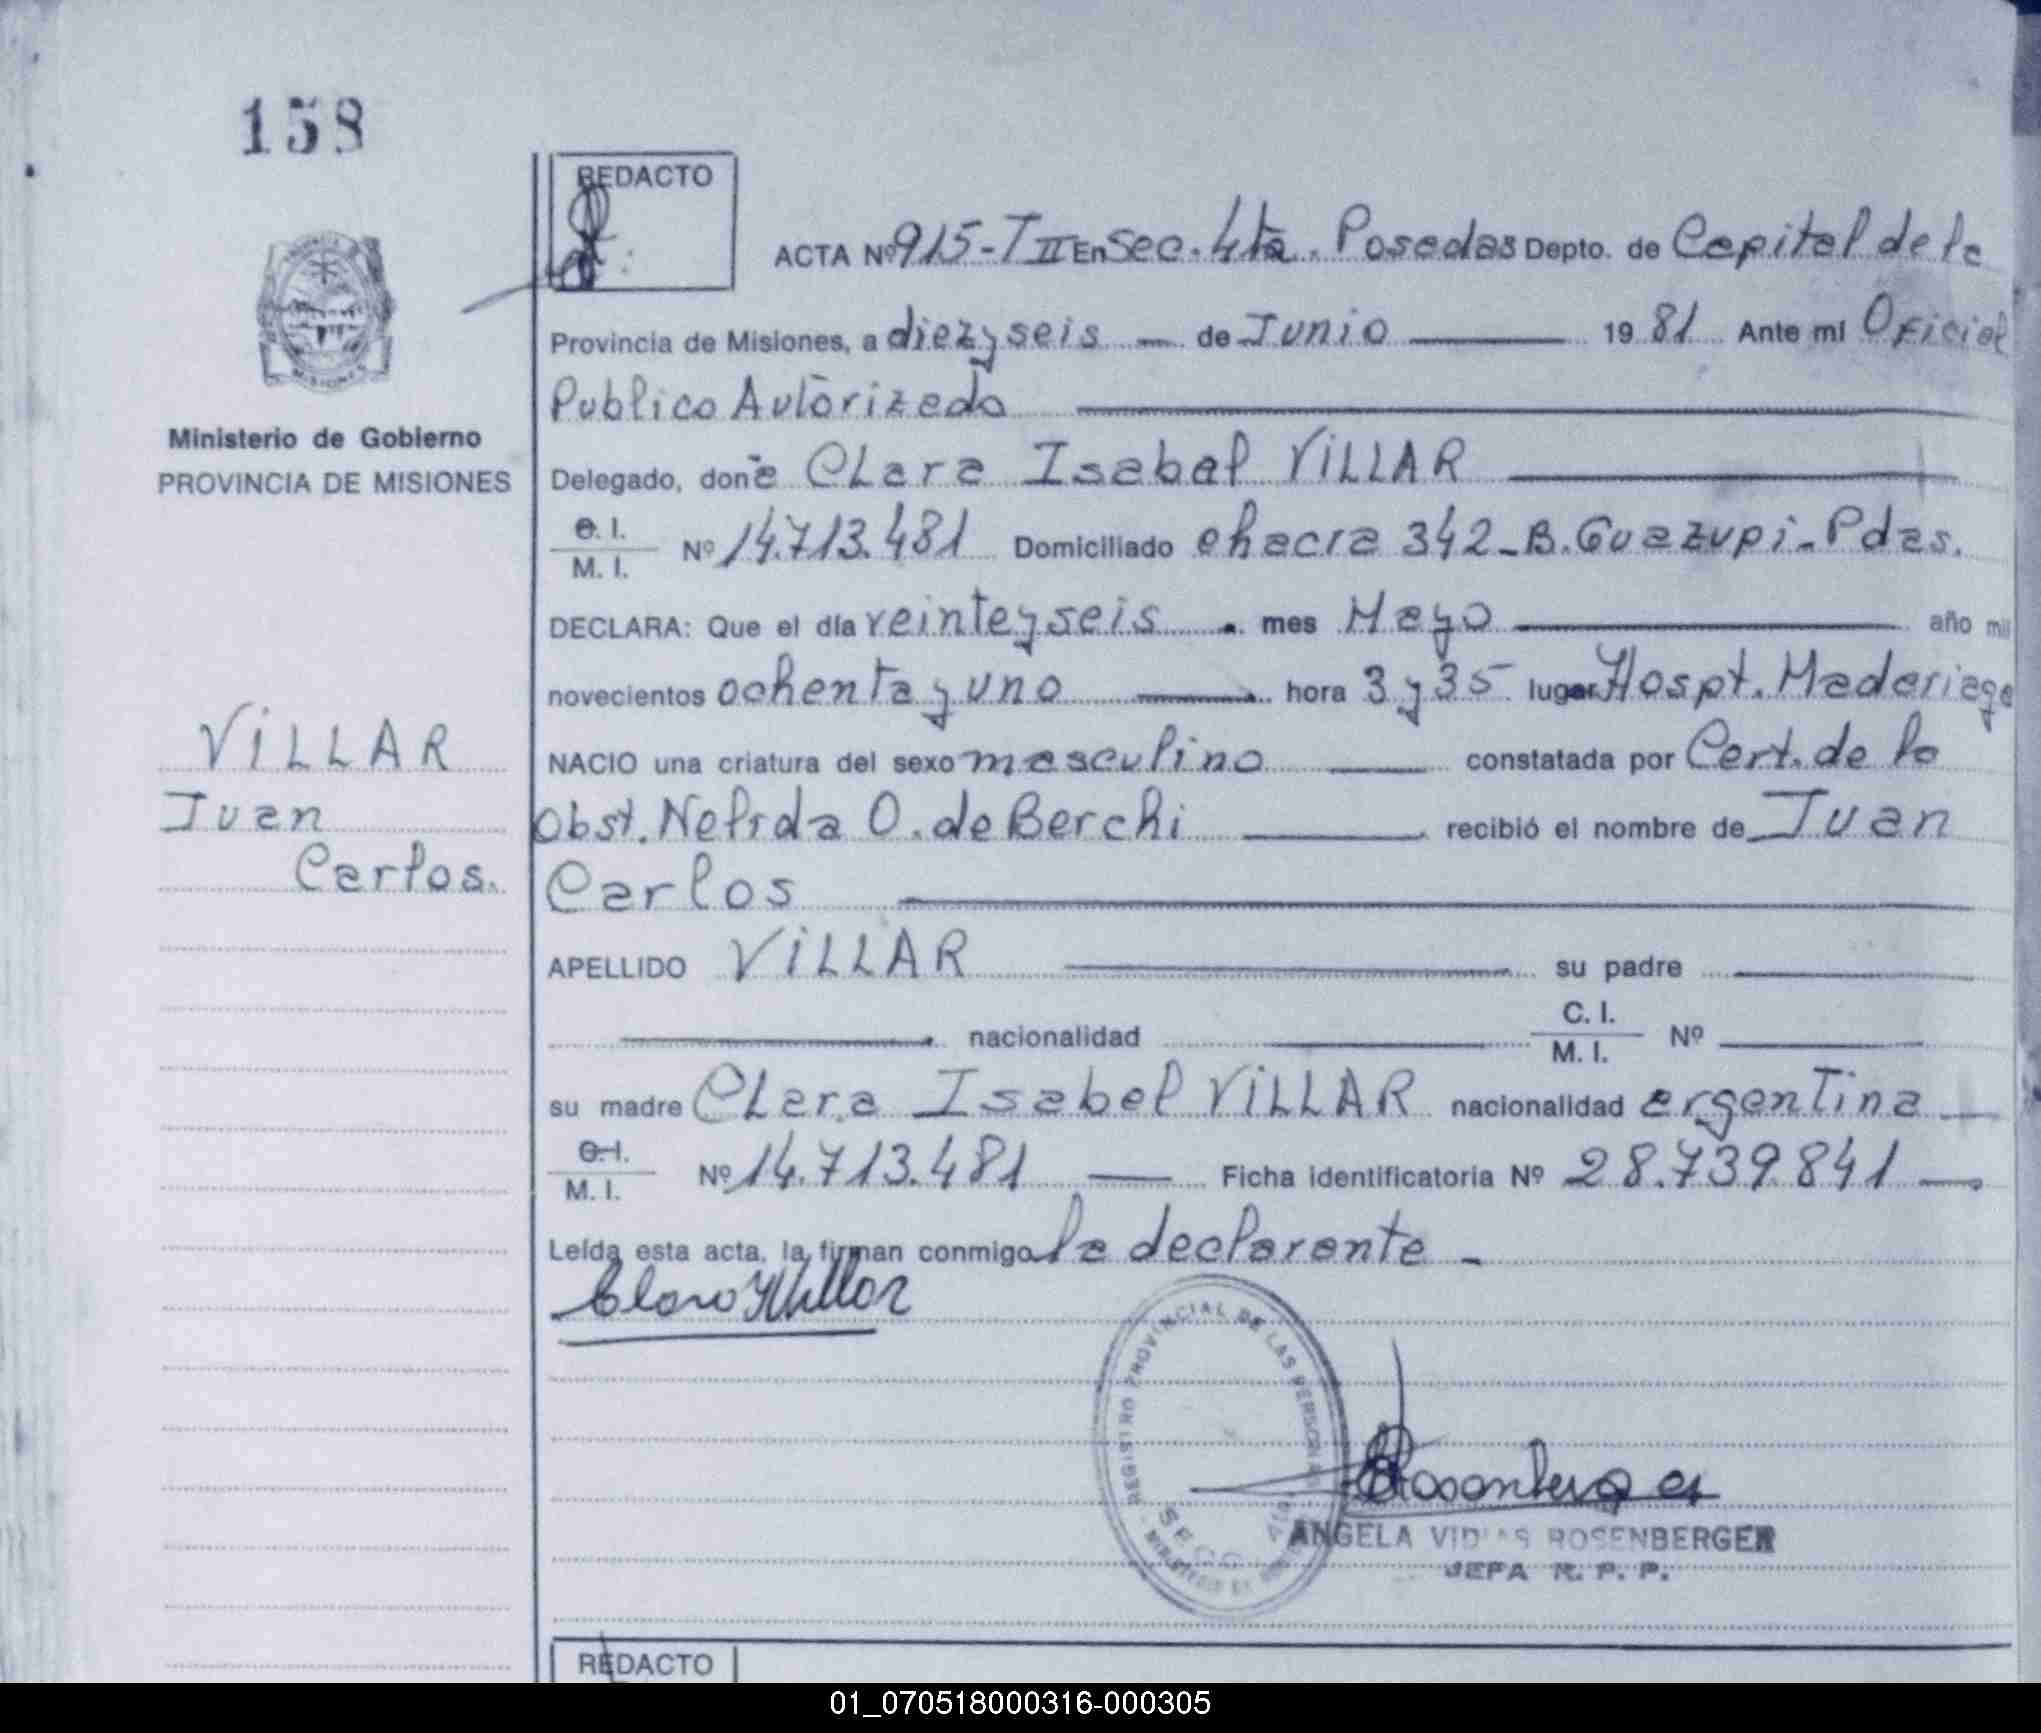 158
REDACTO
ACTA Nº 915-T II En Sec. 4ta. Posadas Depto. de Capital de la
Provincia de Misiones, a diez y seis de Junio 19 81 Ante mi Oficial
Publico Autorizado
Ministerio de Gobierno
PROVINCIA DE MISIONES
Delegado, doña Clara Isabel VILLAR
C. I.
M. I. Nº 14.713.481 Domiciliado chacra 342-B. Guazupi-Pdas.
DECLARA: Que el día veinte y seis mes Mayo año mil
novecientos ochenta y uno hora 3 y 35 lugar Hospt. Madariaga
NACIO una criatura del sexo masculino constatada por Cert. de la
Obst. Nelida O. de Berchi recibió el nombre de Juan
Carlos
VILLAR
Juan
Carlos.
APELLIDO VILLAR su padre
nacionalidad C. I.
M. I. Nº
su madre Clara Isabel VILLAR nacionalidad argentina
C. I.
M. I. Nº 14.713.481 Ficha identificatoria Nº 28.739.841
Leída esta acta, la firman conmigo la declarante
Clara I Villar
REGISTRO PROVINCIAL DE LAS PERSONAS
ANGELA ROSENBERGER
JEFA R. P. P.
REDACTO
01_070518000316-000305